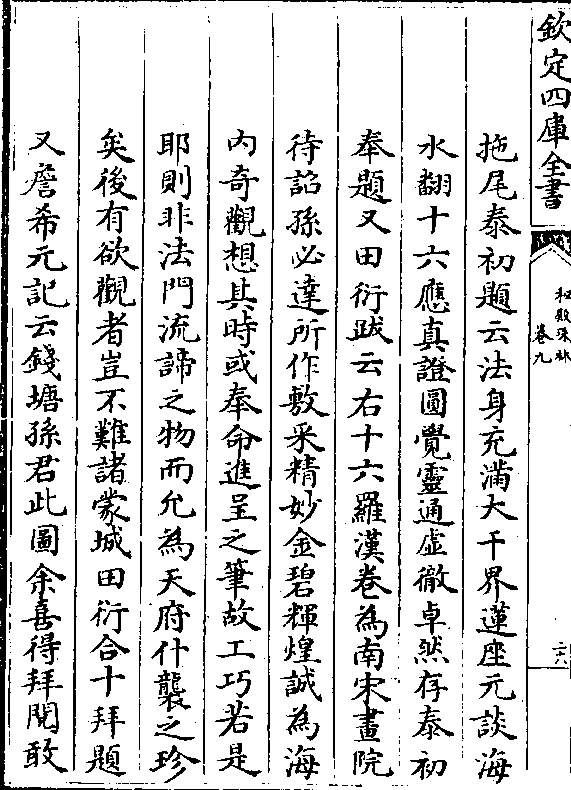 欽定四庫全書
秘殿珠林
卷九
二六
拖尾泰初題云法身充滿大千界蓮座元談海
水翻十六應真證圓覺靈通虛徹卓然存泰初
奉題又田衍跋云右十六羅漢卷為南宋畫院
待詔孫必達所作敷采精妙金碧輝煌誠為海
内奇觀想其時或奉命進呈之筆故工巧若是
耶則非法門流諦之物而允為天府什襲之珍
矣後有欲觀者豈不難諸蒙城田衍合十拜題
又詹希元記云錢塘孫君此圖余喜得拜閱敢